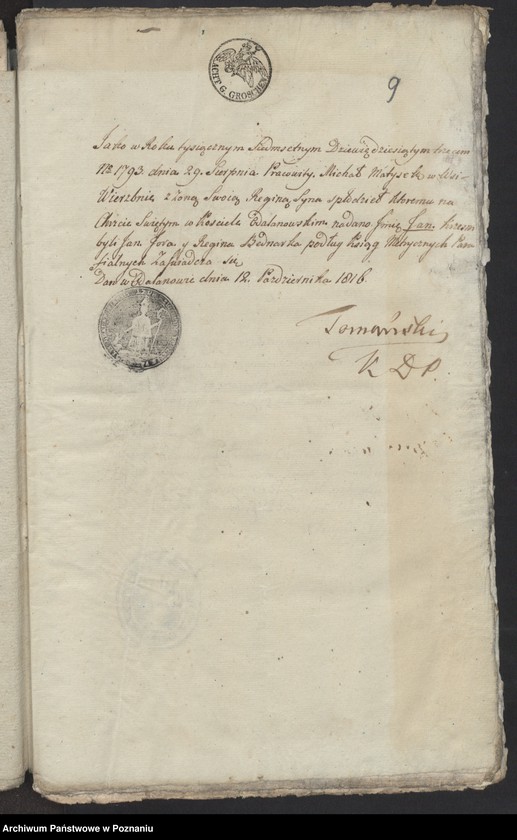 ACHT G. GROSCHEN
9
Jako w Roku tysiącznym Siedmsetnym Dziewięćdziesiątym trzecim
No 1793 dnia 29. Sierpnia Pracowity Michał Matysek w Wsi
Wierzbnie z żoną Swoią Reginą Syna spłodził któremu na
Chrcie Swiętym w Kościele Odalanowskim nadano Jmię Jan.
byli Jan Jora y Regina Bednarka podług Ksiąg Metrycznych Paro
fialnych Zaświadcza się
Dan w Odalanowie dnia 12. Pazdziernika 1816.
Tomawski
K D P.
Archiwum Państwowe w Poznaniu